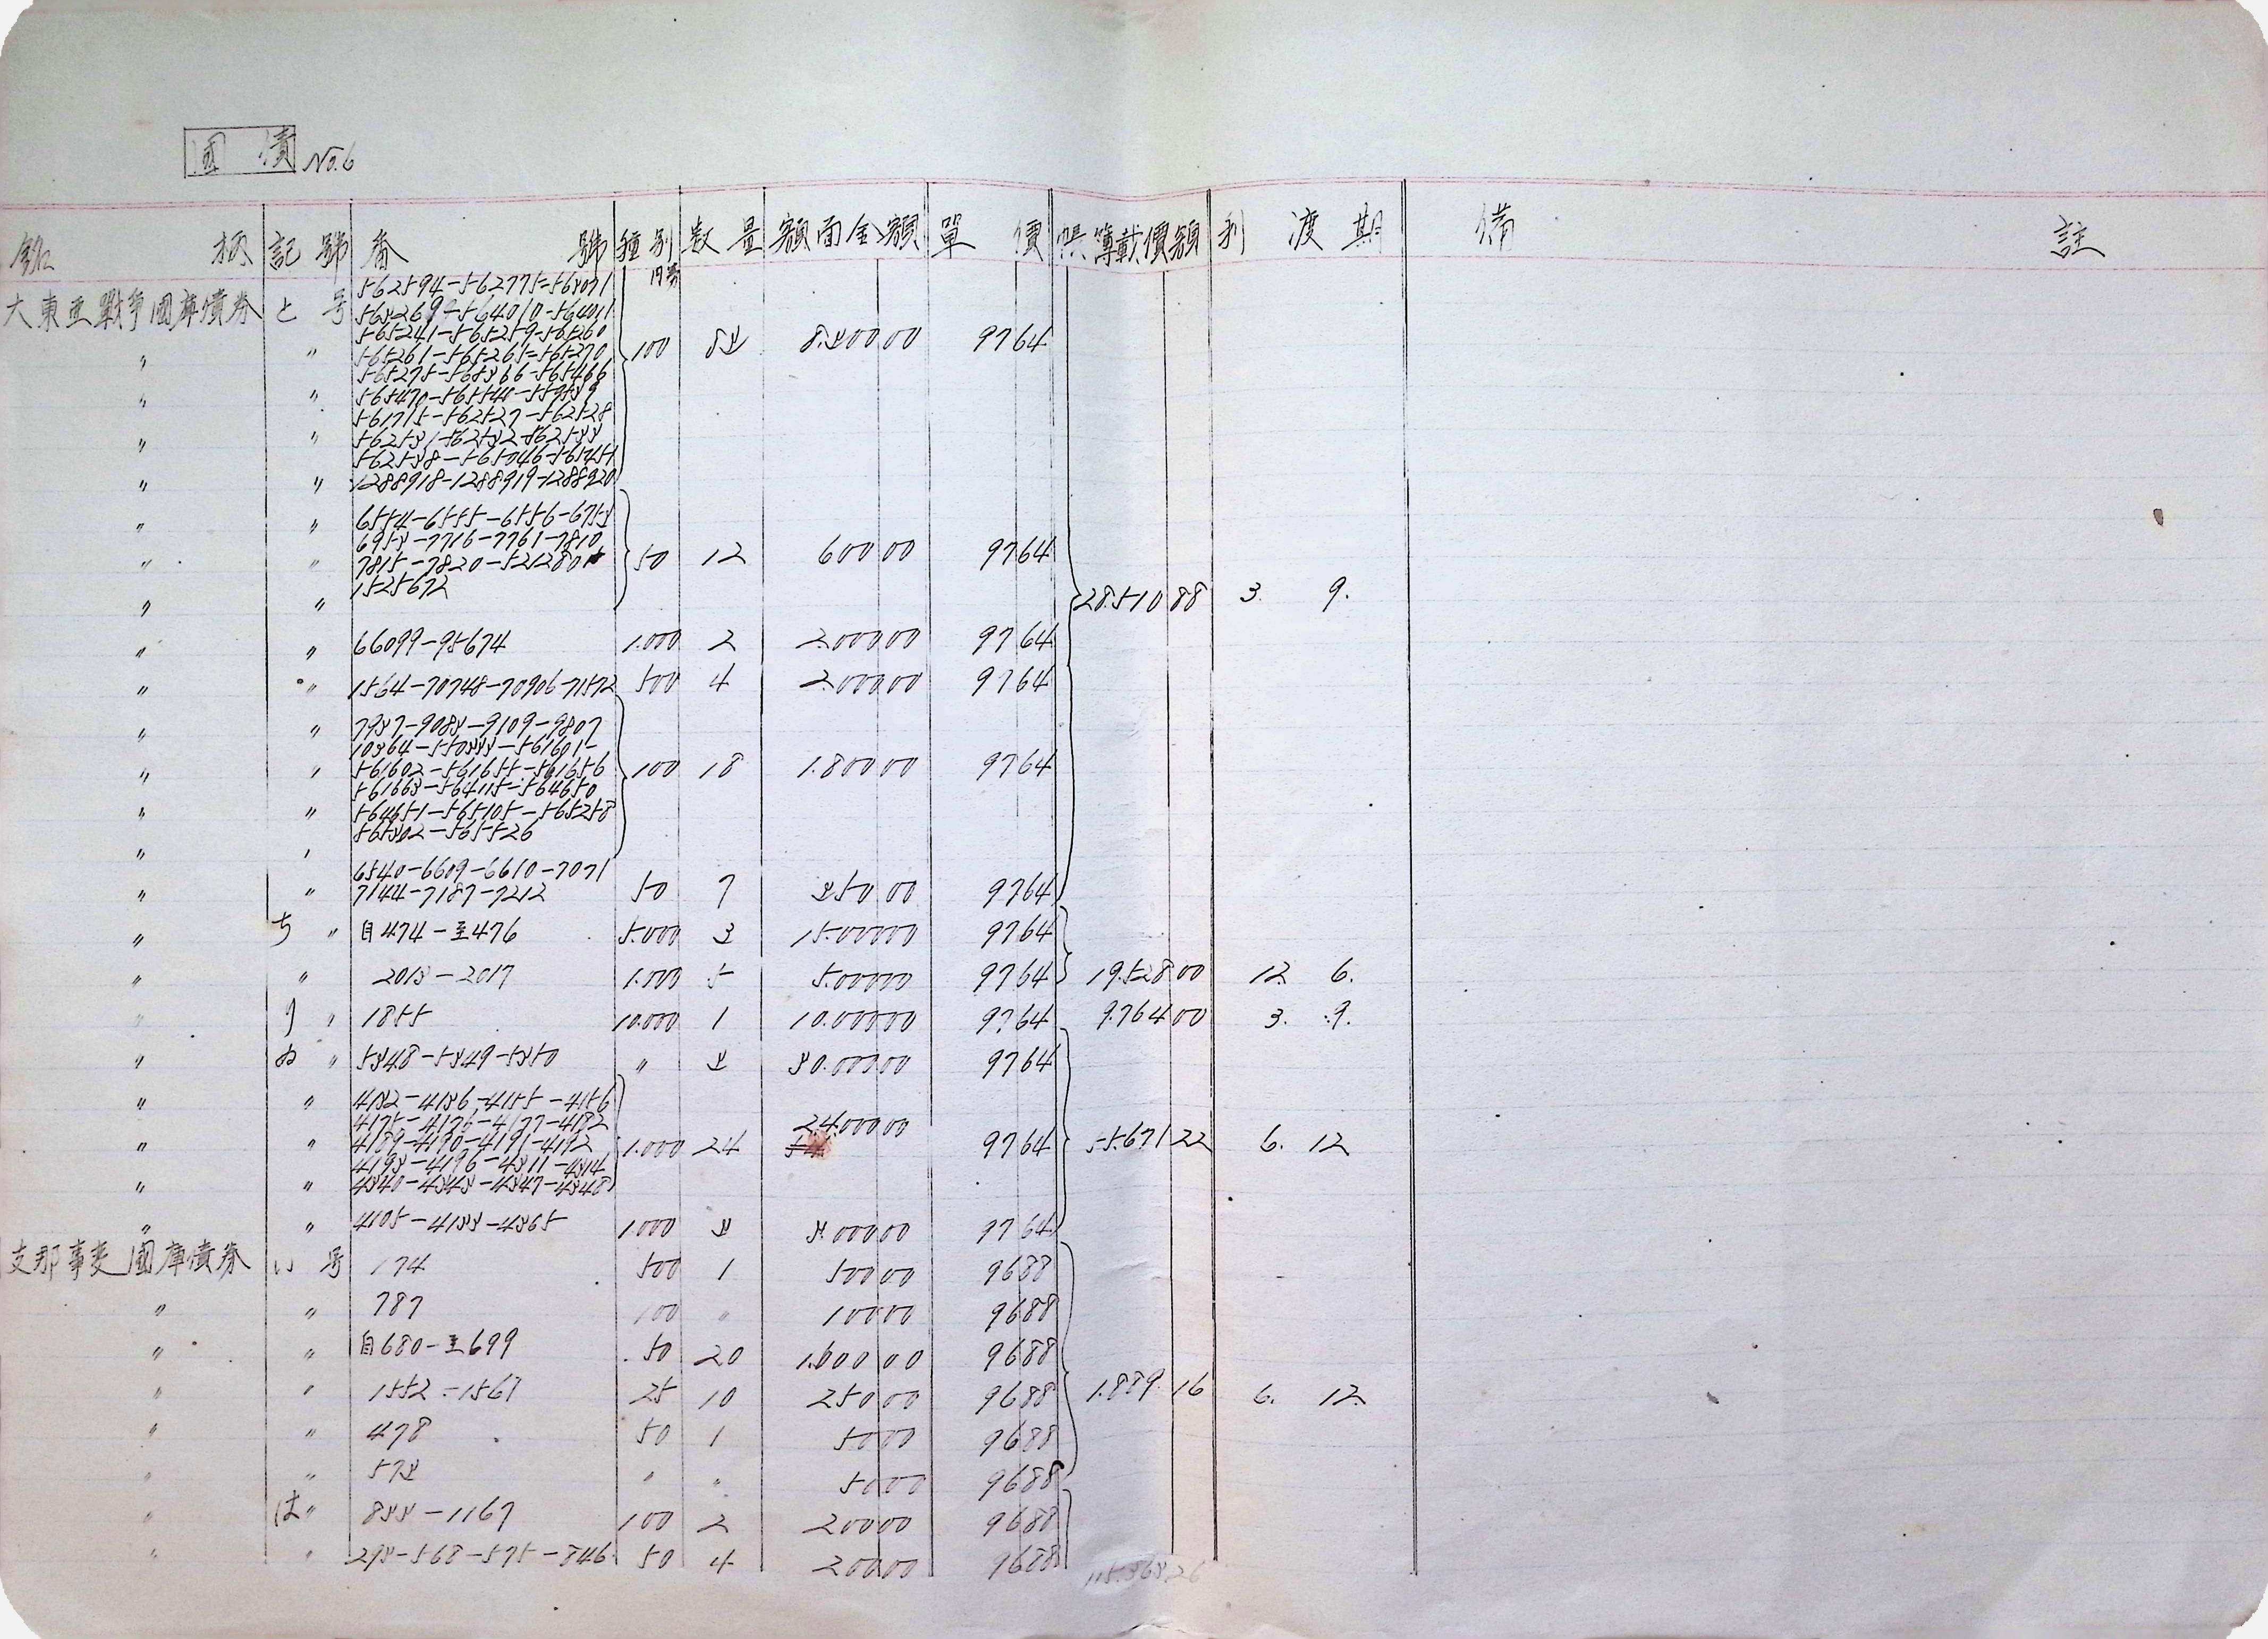 國債 No.6
銘柄 記號 番號 種別 数量 額面金額 單價 帳簿載價額 利渡期 備註
円券
562594-562775-563071
大東亜戰爭國庫債券 と号 563269-564010-564011
565241-565259-565260
〃 〃 565261-565265-565270 100 83 8.300 00 97 64
565275-565366-565466
〃 〃 565470-565540-559539
561715-562527-562528
〃 〃 562531-562532-562533
562538-565046-565451
〃 〃 1288918-1288919-1288920
〃 〃 6554-6555-6556-6753
6953-7716-7761-7810
〃 〃 7815-7820-521280 50 12 600 00 97 64
1525672
〃 〃 28.510 88 3. 9.
〃 〃 66099-95674 1.000 2 2.000 00 97 64
〃 〃 1564-70748-70906-71572 500 4 2.000 00 97 64
〃 〃 7937-9083-9109-9807
10364-550333-561601-
〃 〃 561602-561655-561656 100 18 1.800 00 97 64
561663-564115-564650
〃 〃 564651-565105-565258
565302-565526
〃 〃
6540-6609-6610-7071
〃 〃 7144-7187-7212 50 7 350 00 97 64
〃 ち〃 自474-至476 5.000 3 15.000 00 97 64
〃 〃 2013-2017 1.000 5 5.000 00 97 64 19.528 00 12. 6.
〃 り〃 1855 10.000 1 10.000 00 97 64 9.764 00 3. 9.
〃 ぬ〃 5348-5349-5350 〃 3 30.000 00 97 64
〃 〃 4132-4136-4155-4156
4175-4176-4177-4182
24.000 00
〃 〃 4189-4190-4191-4192 1.000 24 97 64 55.671 22 6. 12
4193-4196-4311-4314
〃 〃 4340-4343-4347-4348
〃 〃 4105-4133-4365 1.000 3 3.000 00 97 64
支那事変國庫債券 い号 174 500 1 500 00 96 88
〃 〃 787 100 〃 100 00 96 88
〃 〃 自680-至699 50 20 1.000 00 96 88
〃 〃 1552-1567 25 10 250 00 96 88 1.889 16 6. 12.
〃 〃 478 50 1 50 00 96 88
〃 〃 573 〃 〃 50 00 96 88
〃 は〃 833-1167 100 2 200 00 96 88
〃 〃 293-568-575-846 50 4 200 00 96 88 115.363.26